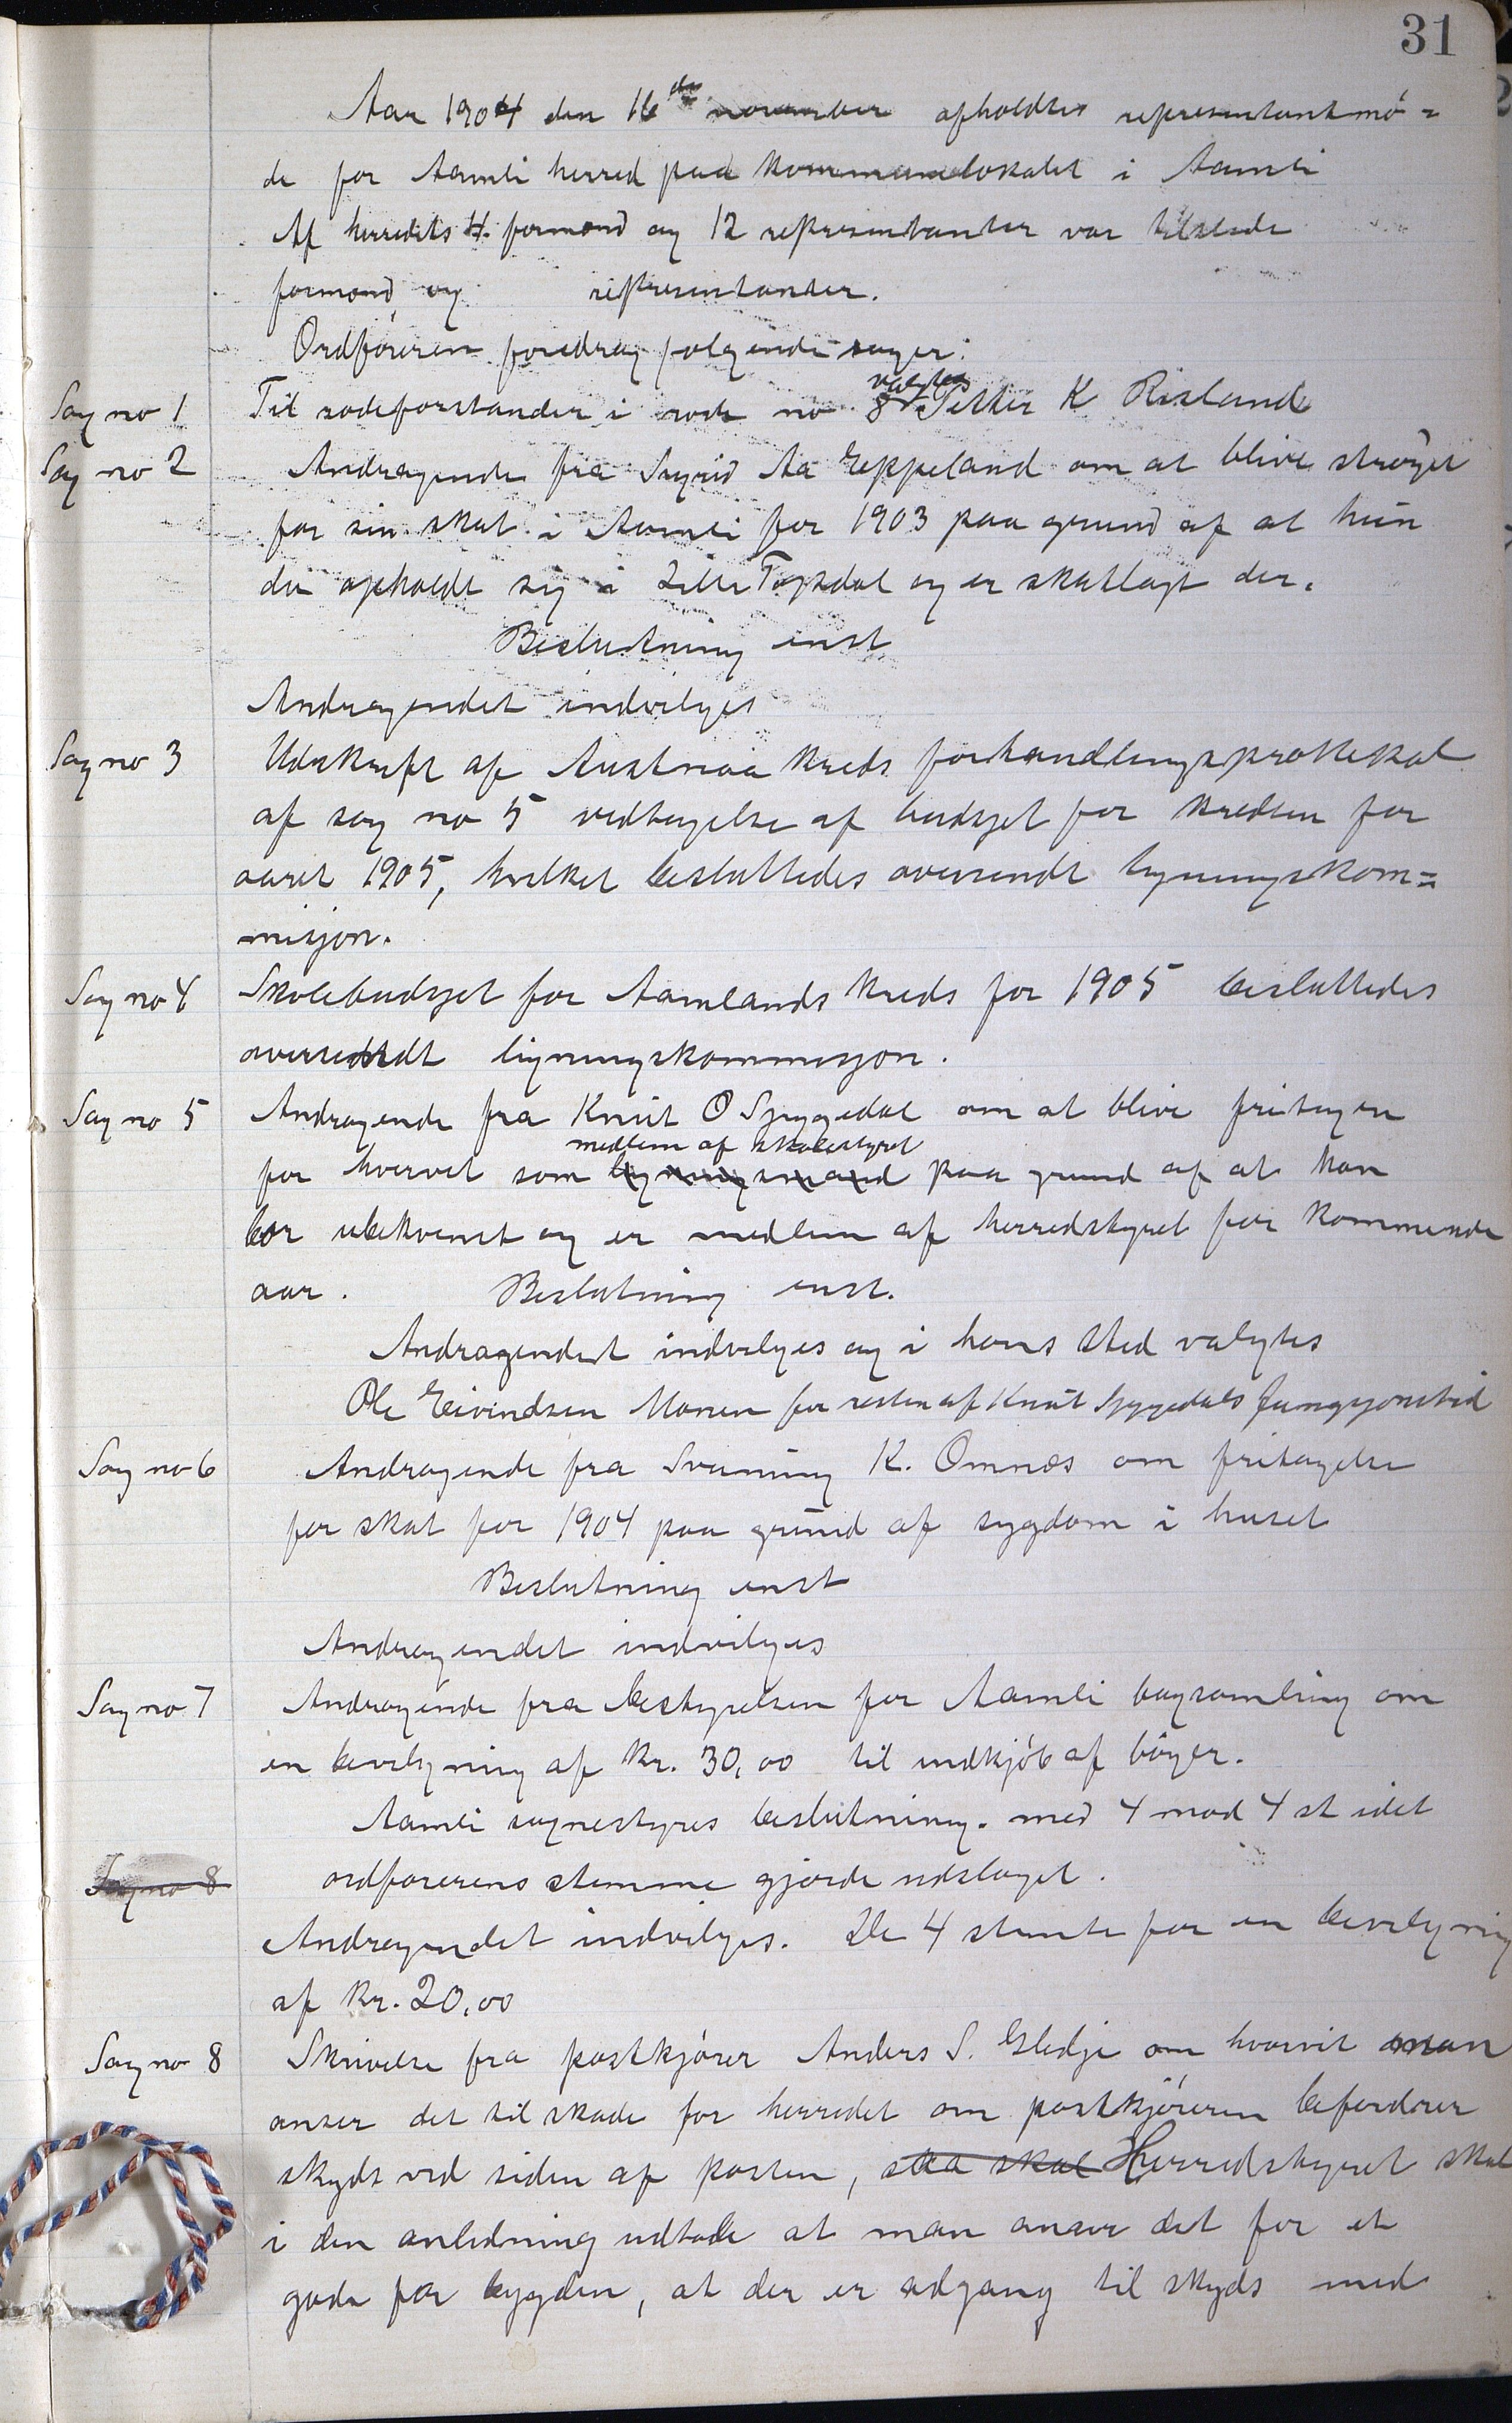 31
Aar 1904 den 16de november afholdtes representantmø=
de for Aamli herred paa kommunelokalet i Aamli
Af herredets 4 formænd og 12 representanter var tilstede
formænd og representanter.
Ordføreren foredrog følgende sager:
Sag no 1 Til rodeforstander i rode no 8 valgtes Petter K Risland
Sag no 2 Andragende fra Sigrid Aa Eppeland om at blive strøget
for sin skat i Aamli for 1903 paa grund af at hun
da opholdt sig i Lille Topdal og er skatlagt der.
Beslutning enst
Andragendet indvilges
Sag no 3 Udskrift af Austenaa kreds forhandlingsprottekol
af sag no 5 vedtagelse af budsjet for kredsen for
aaret 1905, hvilket besluttedes oversendt ligningskom=
misjon.
Sag no 4 Skolebudsjet for Aamlands kreds for 1905 besluttedes
oversendt ligningskommisjon.
Sag no 5 Andragende fra Knut O Sjyggedal om at blive fritagen
medlem af skolestyret
for hvervet som ligningsmand paa grund af at han
bor ubekvemt og er medlem af herredstyret for kommende
aar. Beslutning enst.
Andragendet indvilges og i hans sted valgtes
Ole Eivindsen Monen for resten af Knut Sjyggedals fungsjonstid
Sag no 6 Andragende fra Svænung K. Omnæs om fritagelse
for skat for 1904 paa grund af sygdom i huset
Beslutning enst
Andragendet indvilges
Sag no 7 Andragende fra bestyrelsen for Aamli bogsamling om
en bevilgning af kr. 30,00 til indkjøb af bøger.
Aamli sognestyres beslutning. med 4 mod 4 st idet
Sag no 8 ordførerens stemme gjorde udslaget.
Andragendet indvilges. De 4 stemte for en bevilgning
af kr. 20,00
Sag no 8 Skrivelse fra postkjører Anders S. Gledje om hvorvit man
anser det til skade for herredet om postkjøreren befordrer
skyds ved siden af posten, skal Herredstyret skal
i den anledning udtale at man anser det for et
gode for bygden, at der er adgang til skyds med